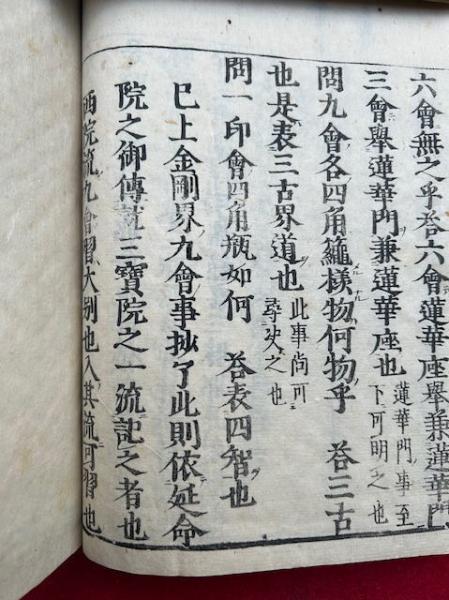 六會無之乎答六會蓮華座舉兼蓮華門
三會舉蓮華門兼蓮華座也蓮華門ノ事至下可明之也
問九會各四角籬樣物何物乎 答三古
也是表三古界道也此事尚可尋決之也
問一印會四角瓶如何 答表四智也
已上金剛界九會事抄了此則依延命
院之御傳就三寶院之一流記之者也
西院流九會習大別也入其流可習也